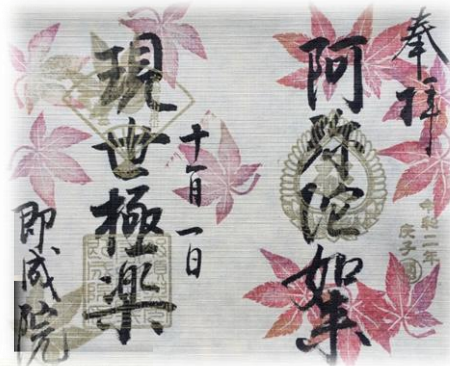 奉拝
令和二年
庚子
阿弥陀如来
十一月一日
現世極楽
即成院